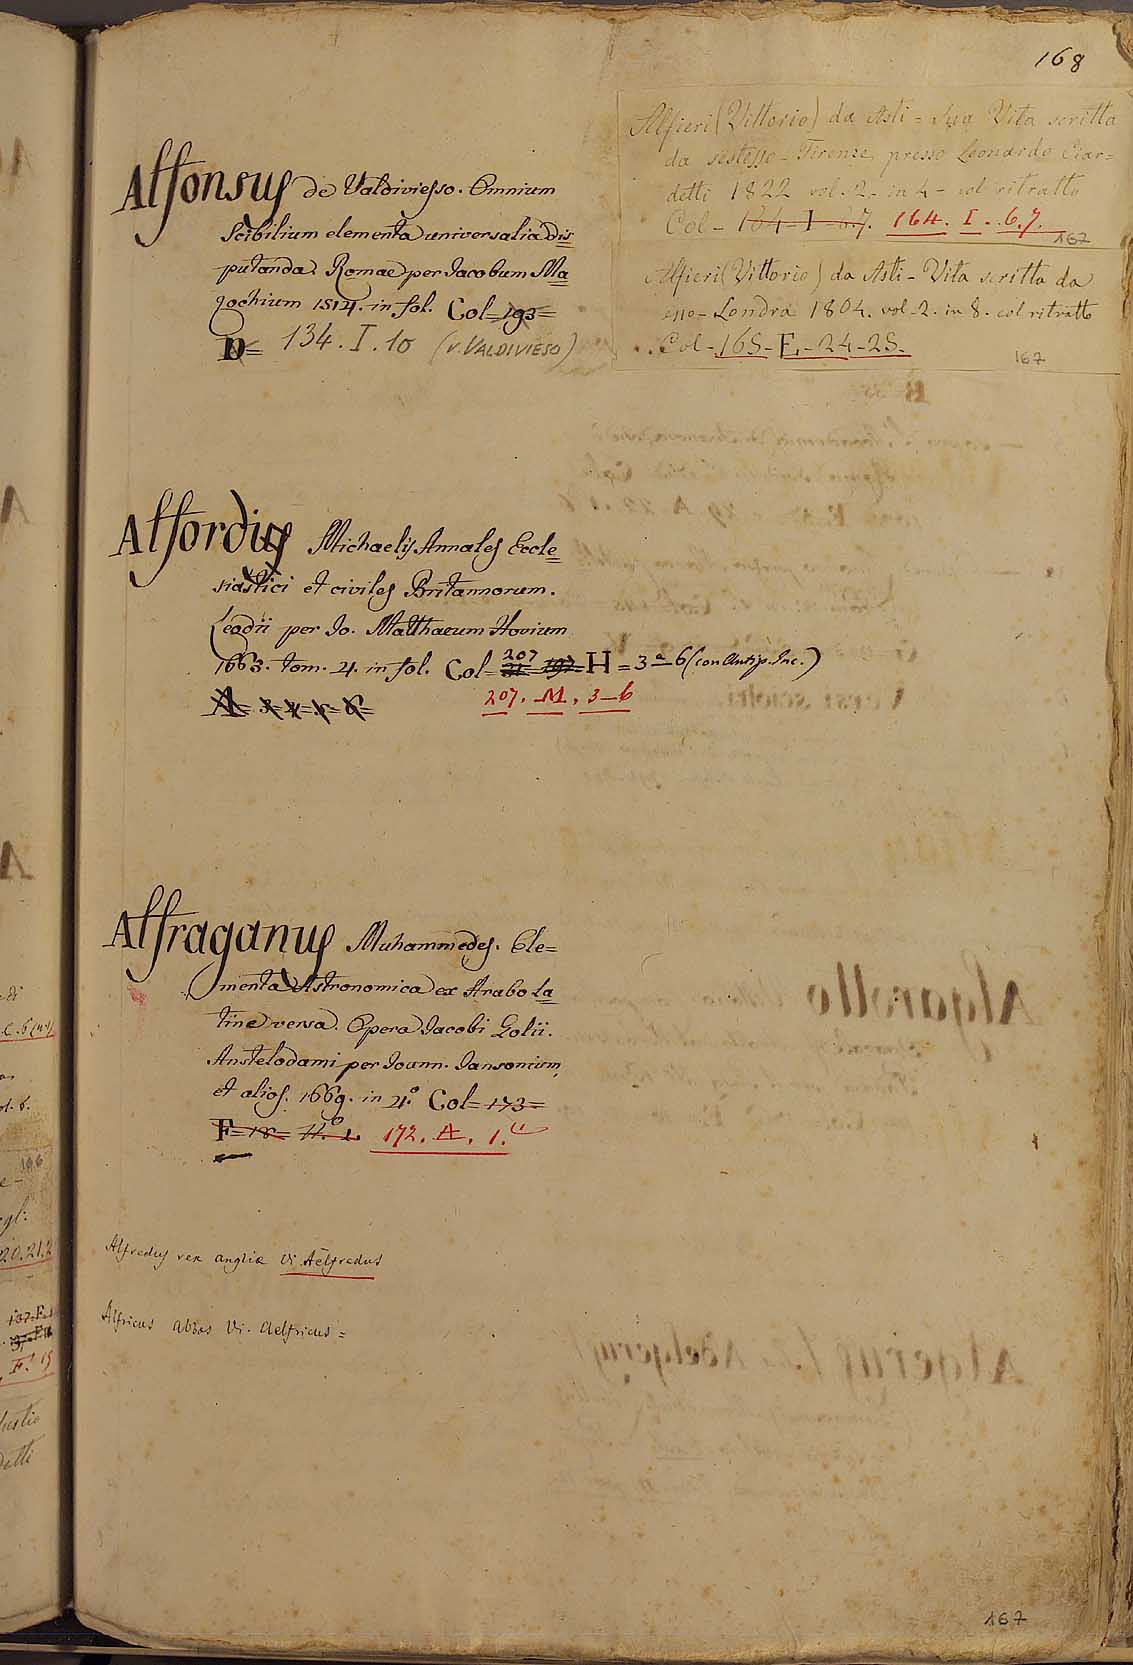 168
Alfonsus de Valdiviesso. Omnium
Scibilium elementa universalia dis=
putanda. Romae per Jacobum Ma=
zochium 1514. in fol. Col= 193=
D= 134. I. 10 (v. VALDIVIESO)
Alfieri (Vittorio) da Asti = Sua Vita scritta
da sestesso - Firenze, presso Leonardo Ciar=
detti 1822 vol. 2. in 4 - col ritratto
Col - 164 - I - 6.7. 164. I. 6.7.
167
Alfieri (Vittorio) da Asti - Vita scritta da
esso - Londra 1804. vol. 2. in 8. col ritratto
Col - 165 - E. - 24-25.
167
Alfordius Michaelis Annales Eccle=
siastici et civiles Britannorum.
Leodii per Jo. Matthaeum Hovium
1663. tom. 4. in fol. Col= 207 H = 3 a 6 (con Antip. Inc.)
A= 3= 4= 5= 6=
207. M. 3-6
Alfraganus Muhammedes. Ele=
menta Astronomica ex Arabo La=
tine versa. Opera Jacobi Golii.
Amstelodami per Joann. Jansonium
et alios. 1669. in 4.° Col= 173=
F= 18= 172. A. 1.
Alfredus rex angliæ Vi. Aelfredus
Alfricus abbas Vi. Aelfricus=
167